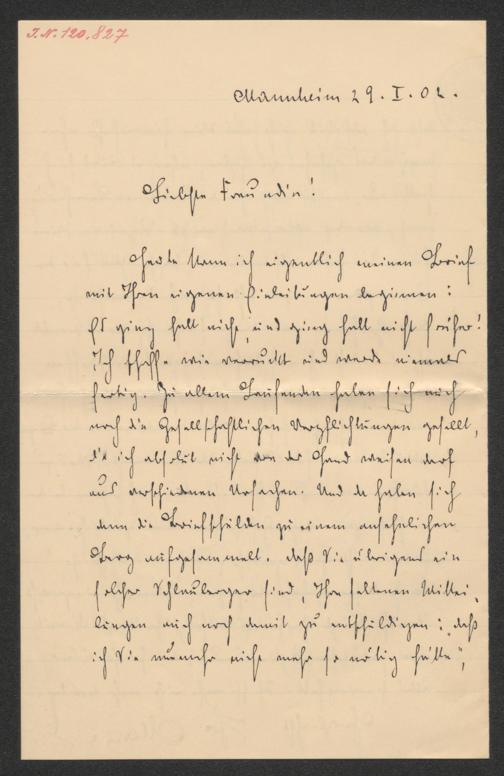 I.N. 120.827
Mannheim 29. I. 02.
Liebste Freundin!
Heute kann ich eigentlich meinen Brief
mit Ihren eigenen Einleitungen beginnen:
Es ging halt nicht, und ging halt nicht früher!
Ich schaffe wie verrückt und werde niemals
fertig. Zu allem Laufenden haben sich auch
noch die Gesellschaftlichen Verpflichtungen gesellt,
die ich absolut nicht von der Hand weisen darf
aus verschiedenen Ursachen. Und da haben sich
denn die Briefschulden zu einem ansehnlichen
Berg aufgesammelt. Daß Sie übrigens ein
solcher Schlauberger sind, Ihre seltenen Mittei-
lungen auch noch damit zu entschuldigen: „daß
ich Sie nunmehr nicht mehr so nötig hätte“,